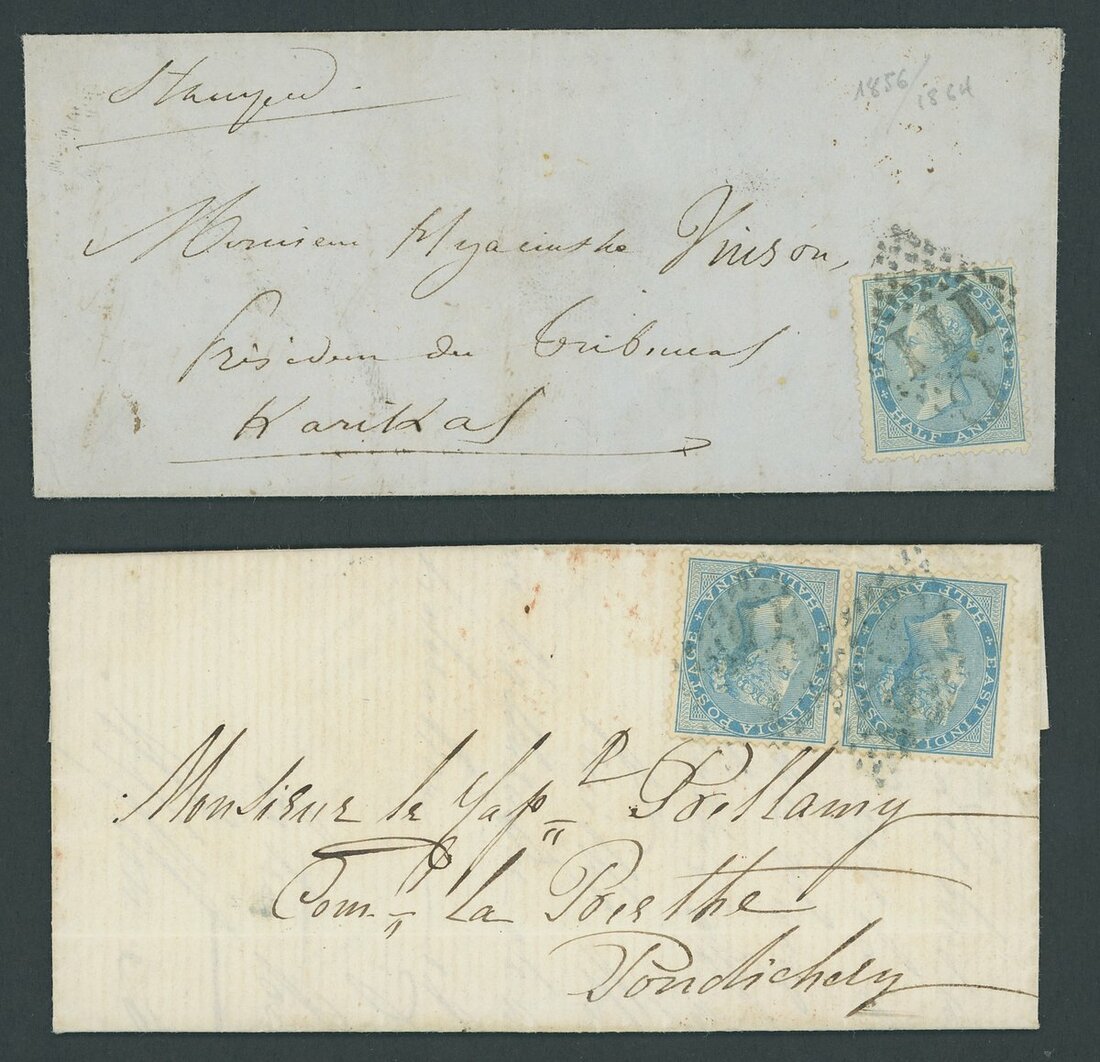 Stamped.
1856/1864
Monsieur Hyacinthe Vinson,
Président du Tribunal
Karikal
EAST INDIA POSTAGE
HALF ANNA
Monsieur le Cap.ne P. Bellamy
Com.t la Berthe
Pondichery
EAST INDIA POSTAGE
HALF ANNA
EAST INDIA POSTAGE
HALF ANNA